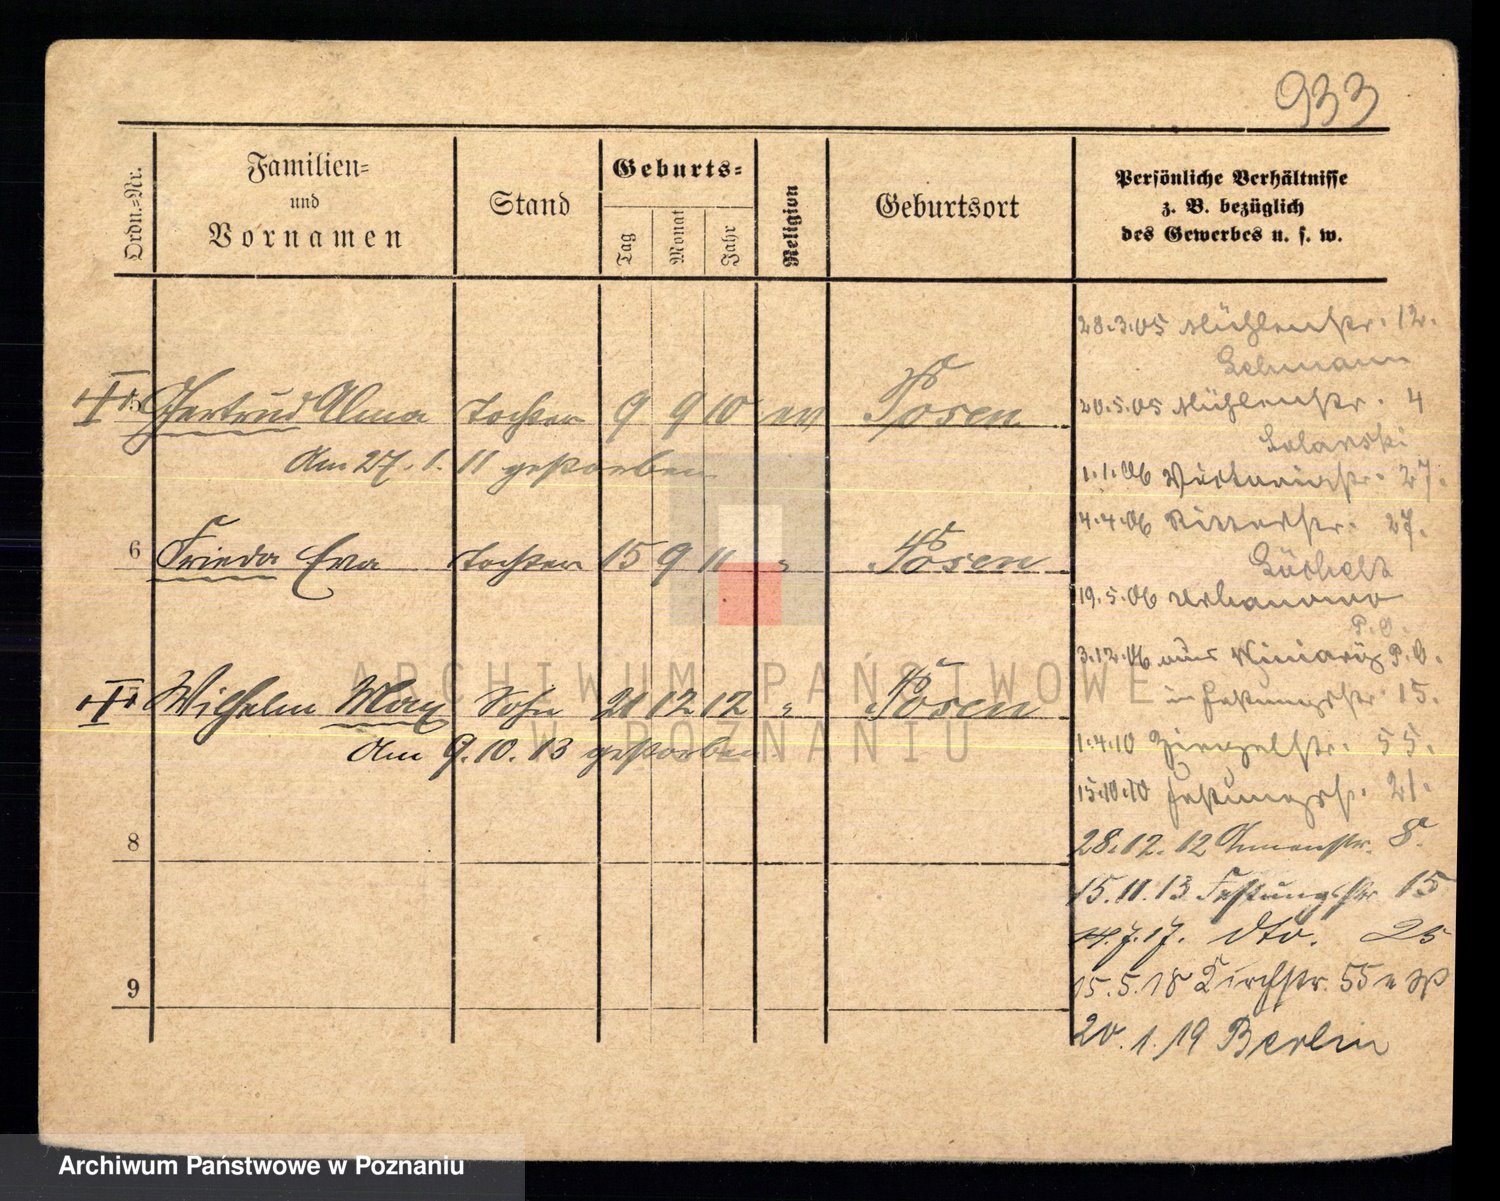 933
Ordn.=Nr.
Familien=
und
Vornamen
Stand
Geburts=
Tag
Monat
Jahr
Religion
Geburtsort
Persönliche Verhältnisse
z. B. bezüglich
des Gewerbes u. s. w.
5 Gertrud Alma Tochter 9 9 10 ev Posen
Am 27.1.11 gestorben
6 Frieda Eva Tochter 15 9 11 " Posen
Wilhelm Max Sohn 21 12 12 " Posen
Am 9.10.13 gestorben
8
9
28.3.05 Mühlenstr. 12.
Lehmann
20.5.05 Mühlenstr. 4
1.1.06 27.
4.4.06 Ritterstr. 27.
19.5.06 Urbanowo
P.O.
3.12.06 aus P.O.
in Festungsstr. 15.
1.4.10 55.
15.10.10 Festungsstr. 21.
28.12.12 8a
15.11.13 Festungsstr 15
7.17. dto. 25
15.5.18 Kirchstr. 55
20.1.19 Berlin
ARCHIWUM PAŃSTWOWE
W POZNANIU
Archiwum Państwowe w Poznaniu